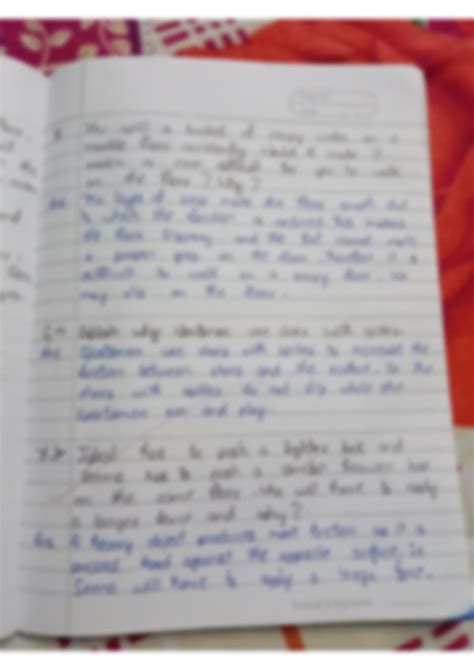 You spill a bucket of soapy water on a
marble floor accidently. Would it make it
easier or more difficult for you to walk
on the floor? Why?
Ans The layer of soap makes the floor smooth due
to which the friction is reduced. This makes
the floor slippery and the foot cannot make
a proper grip on the floor. Therefore it is
difficult to walk on a soapy floor. We
may slip on the floor.
Explain why sportsmen use shoes with spikes.
Ans Sportsmen use shoes with spikes to increase the
friction between shoes and the surface. So the
shoes with spikes do not slip while the
sportsmen run and play.
Iqbal has to push a lighter box and
Seema has to push a similar heavier box
on the same floor. Who will have to apply
a larger force and why?
Ans A heavy object produces more friction as it is
pressed hard against the opposite surface. So
Seema will have to apply a large force.